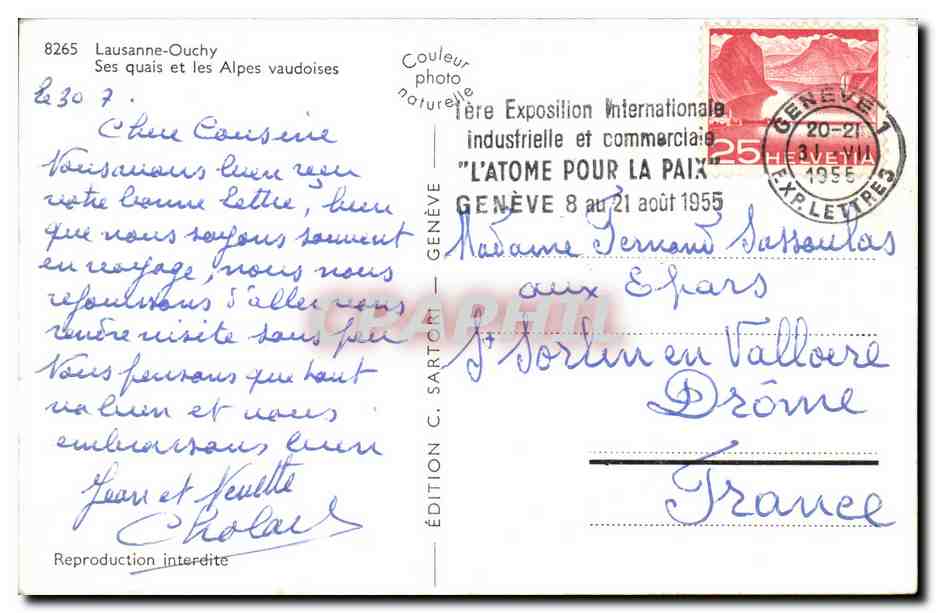 8265 Lausanne-Ouchy
Ses quais et les Alpes vaudoises
Couleur
photo
naturelle
le 30 7.
Chère Cousine
Nous avons bien reçu
votre bonne lettre, bien
que nous soyons souvent
en voyage, nous nous
rejouissons d'aller vous
rendre visite sous peu
Nous pensons que tout
va bien et vous
embrassons bien
Jean et Nenette
Reproduction interdite
ÉDITION C. SARTORI - GENÈVE
1ère Exposition Internationale
industrielle et commerciale
"L'ATOME POUR LA PAIX"
GENÈVE 8 au 21 août 1955
25 HELVETIA
GENÈVE 1
20-21
31. VII
1955
EXP. LETTRES
Madame Fernand Sassoulas
aux Epars
St Sorlin en Valloire
Drôme
France
CPAPHIL